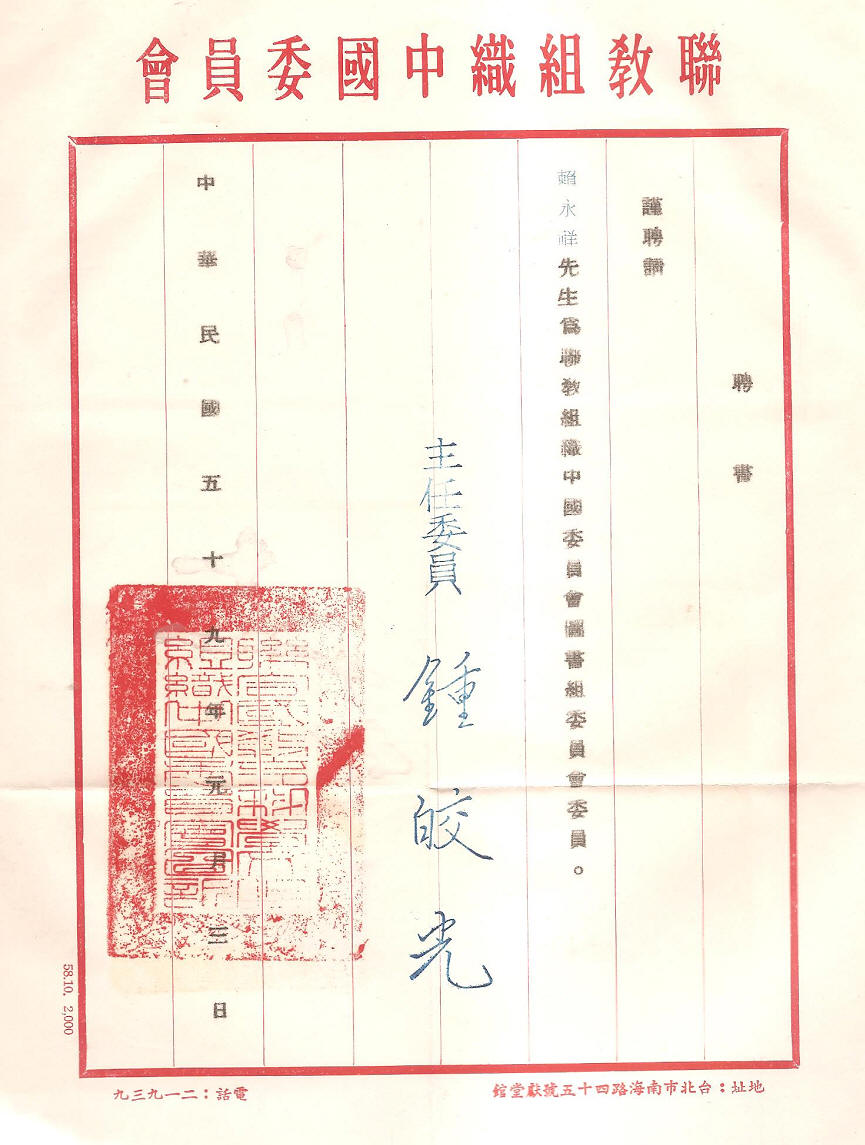 聯教組織中國委員會
聘書
謹聘請
賴永祥先生為聯教組織中國委員會圖書組委員會委員。
主任委員 鍾皎光
中華民國五十九年元月三日
地址：台北市南海路四十五號獻堂館
電話：二一九三九
58.10. 2,000